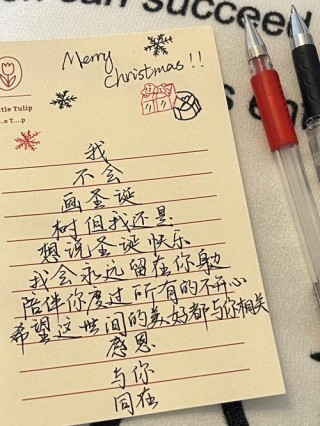 can succeed
Merry
Christmas!!
ttle Tulip
我
不会
画圣诞
树但我还是
想说圣诞快乐
我会永远留在你身边
陪伴你度过所有的不开心
希望这世间的美好都与你相关
感恩
与你
同在